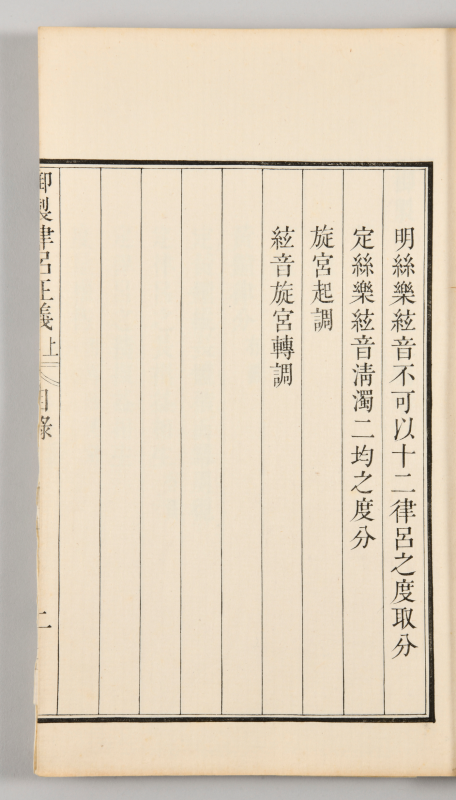 明絲樂絃音不可以十二律呂之度取分
定絲樂絃音淸濁二均之度分
旋宮起調
絃音旋宮轉調
御製律呂正義上
目錄
二